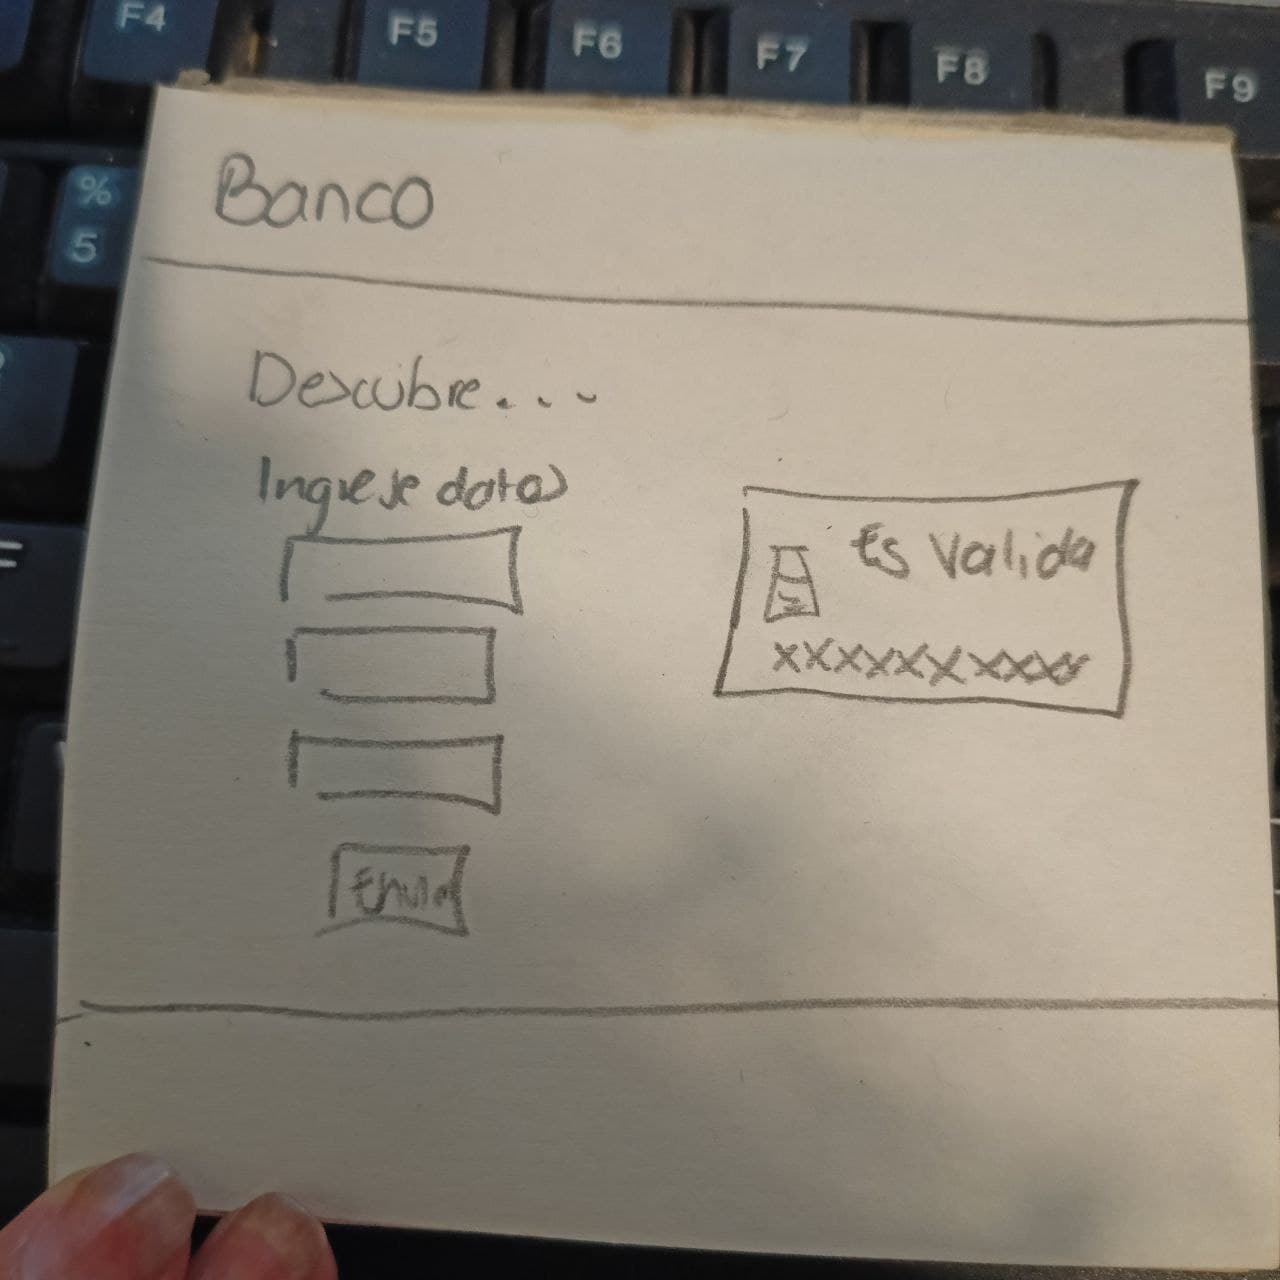 F4 F5 F6 F7 F8 F9
%
5
=
Banco
Descubre...
Ingrese datos
Es Valida
xxxxxxxxxx